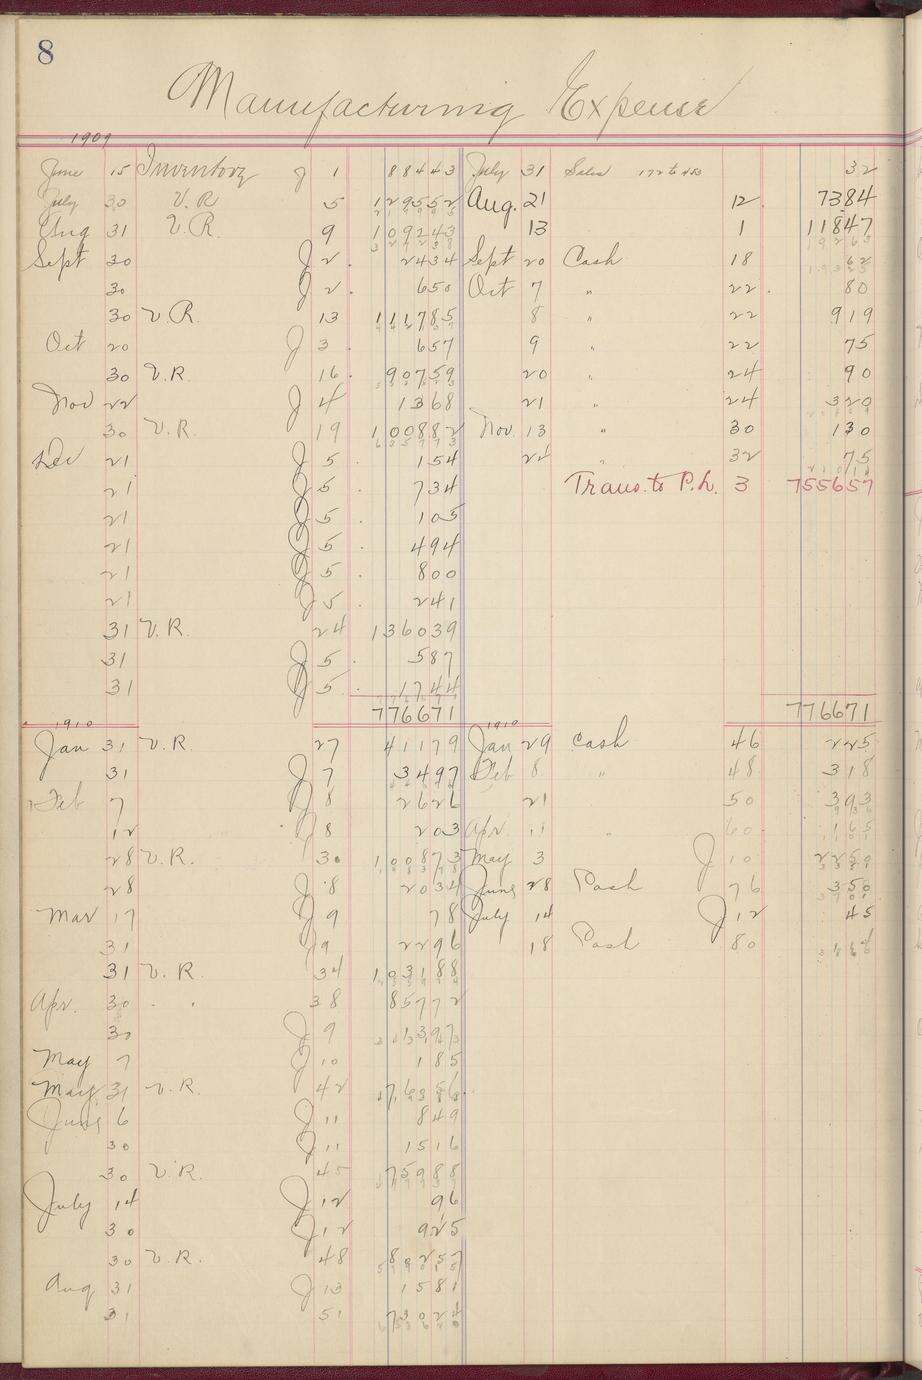 8
Manufacturing Expense
1909
June 15 Inventory J 1 88443 July 31 Sales 32
July 30 V.R. 5 129552 Aug. 21 12 7384
Aug 31 V.R. 9 109243 13 1 11847
Sept 30 J 2 2434 Sept 20 Cash 18 62
30 J 2 650 Oct 7 " 22 80
30 V.R. 13 111785 8 " 22 919
Oct 20 J 3 657 9 " 22 75
30 V.R. 16 90759 20 " 24 90
Nov 22 J 4 1368 21 " 24 320
30 V.R. 19 100882 Nov. 13 " 30 130
Dec 21 J 5 154 24 " 32 75
21 J 5 734 Trans. to P.L. 3 755657
21 J 5 105
21 J 5 494
21 J 5 800
21 J 5 241
31 V.R. 24 136039
31 J 5 587
31 J 5 1744
776671 776671
1910 1910
Jan 31 V.R. 27 41179 Jan 29 Cash 46 225
31 J 7 3497 Feb 8 " 48 318
Feb 7 J 8 2626 21 50 393
12 J 8 203 Apr. 11 " 60 165
28 V.R. 30 100873 May 3 J 10 2259
28 J 8 2034 June 28 Cash 76 350
Mar 17 J 9 78 July 14 J 12 45
31 J 9 2296 18 Cash 80
31 V.R. 34 103188
Apr. 30 " " 38 85772
30 J 9 1397
May 7 J 10 185
May 31 V.R. 42 76356
June 6 J 11 849
30 J 11 1516
30 V.R. 45 75988
July 14 J 12 96
30 J 12 925
30 V.R. 48 80257
Aug 31 J 13 1581
31 51 73024